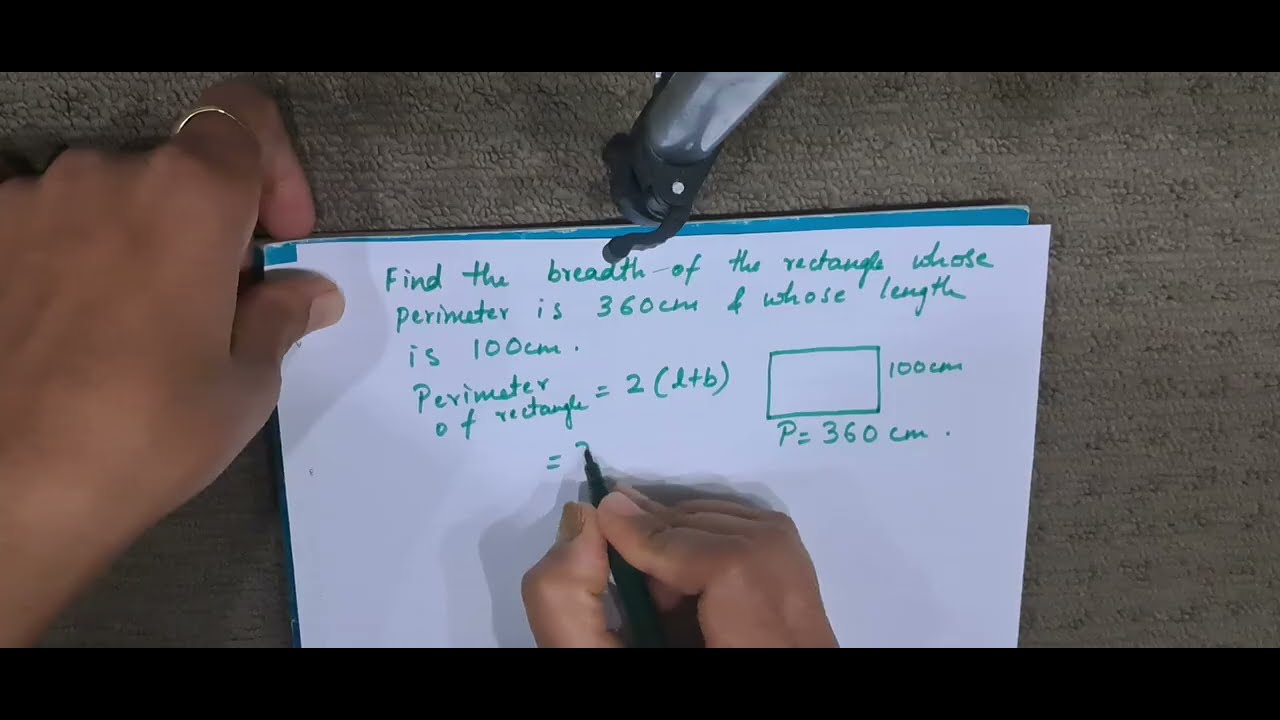 Find the breadth of the rectangle whose
perimeter is 360cm & whose length
is 100cm.
Perimeter
of rectangle = 2 (l+b)
=
100cm
P= 360 cm.